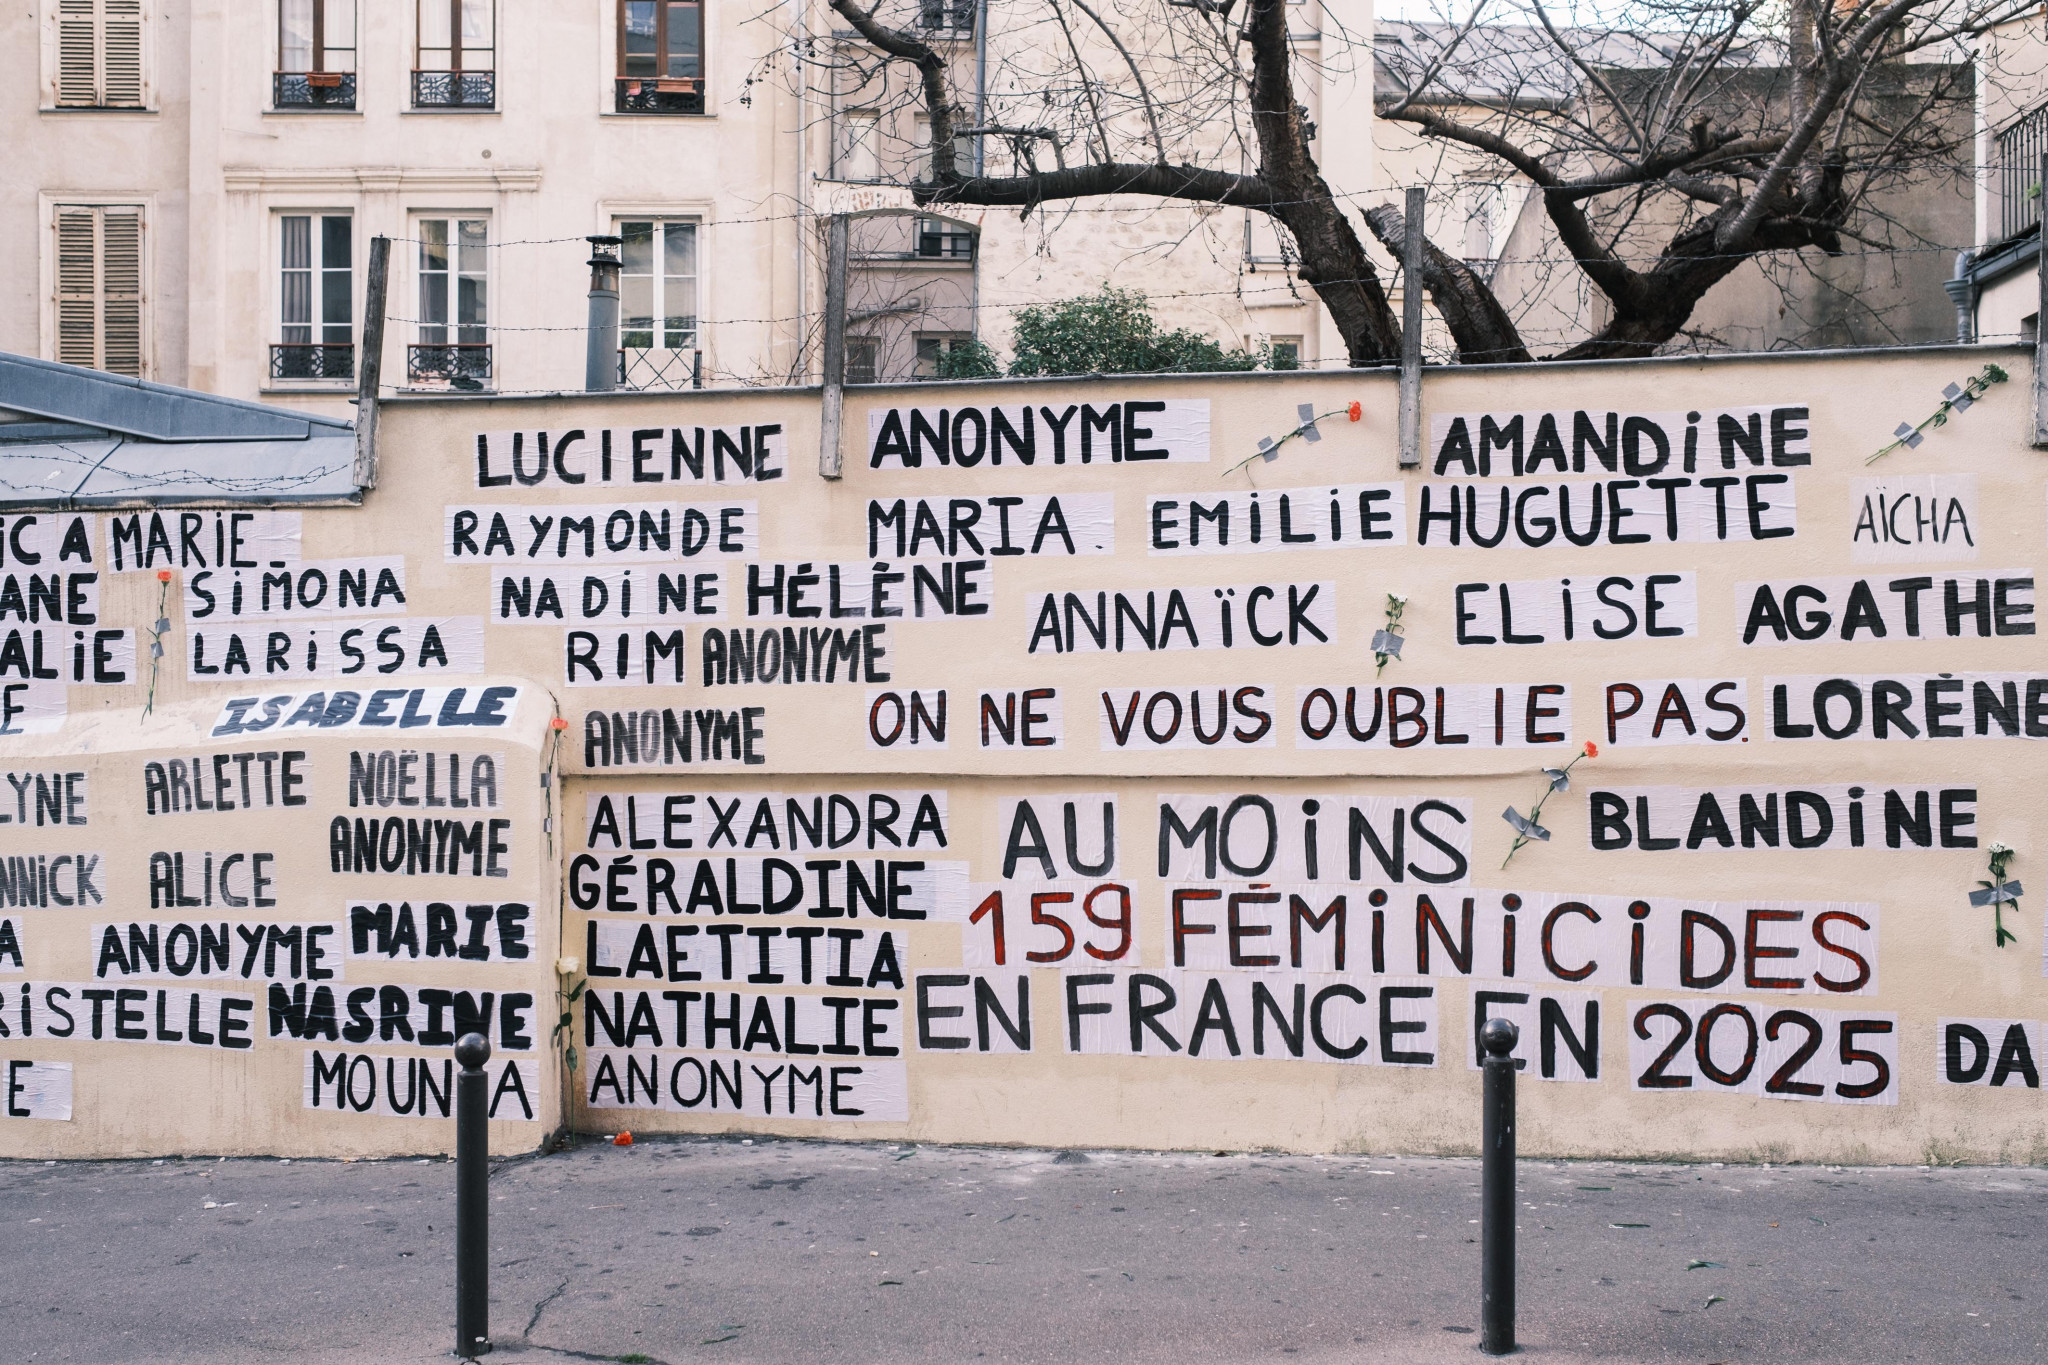 LUCIENNE ANONYME AMANDiNE
MARiE RAYMONDE MARIA EMiLiE HUGUETTE AÏCHA
SiMONA NADiNE HÉLÈNE ANNAÏCK ELiSE AGATHE
LARiSSA RIM ANONYME
ISABELLE ANONYME ON NE VOUS OUBLIE PAS. LORÈNE
ARLETTE NOËLLA ALEXANDRA AU MOiNS BLANDiNE
ANONYME
ALICE GÉRALDINE 159 FÉMiNiCiDES
ANONYME MARIE LAETITIA
NASRINE NATHALIE EN FRANCE EN 2025
ANONYME